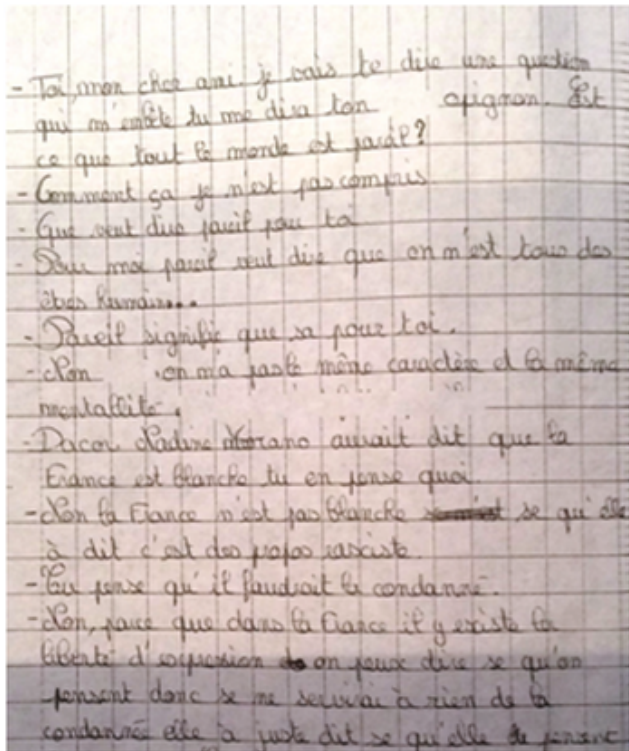 - Toi, mon cher ami je vais te dire une question
qui m'embête tu me dira ton opignon. Est
ce que tout le monde est pareil?
- Comment ça je n'est pas compris
- Que veut dire pareil pour toi
- Pour moi pareil veut dire que on n'est tous des
êtres humain...
- Pareil signifie que sa pour toi.
- Non on n'a pas le même caractère et la même
mentallité.
- Dacor Nadine Morano aurait dit que la
France est blanche tu en pense quoi.
- Non la France n'est pas blanche se qu'elle
à dit c'est des propos rasciste.
- Tu pense qu'il faudrait la condanné.
- Non, parce que dans la France il y existe la
liberté d'expression on peux dire se qu'on
pensent donc se ne servirai à rien de la
condannée elle à juste dit se qu'elle